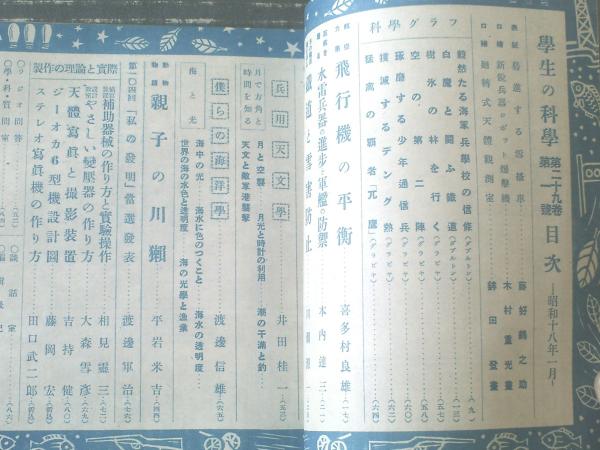 學生の科學 第二十九卷 第一號 目次 ―昭和十八年一月―
表紙 驀進する雪橇車 藤好鶴之助
口繪 新鋭兵器ロボット爆撃機 木村重光畫
口繪 廻轉式天體觀測室 鉾田登畫
科學グラフ
毅然たる海軍兵學校の信條
白魔と鬪ふ鐵道
樹氷の林を行く
空の第二陣
琢磨する少年通信兵
撲滅するデング熱
猛禽の覇者「兀鷹」
飛行機の平衡 喜多村良雄
水雷兵器の進步と軍艦の防禦 木內達三
鐵道と雪害防止
兵用天文學 井田桂一
月で方角と時間を知る
月と空襲 月光と時計の利用 潮の干滿と釣
天文と敵軍港襲擊
僕らの海洋學 渡邊信雄
海と光
海中の光 海水に色のつくこと 海水の透明度
世界の海の水色と透明度 海の光學と漁業
動物物語 親子の川獺 平岩米吉
第一〇四回「私の發明」當選發表 渡邊軍治
製作の理論と實際
補助器械の作り方と實驗操作 相見靈三
やさしい變壓器の作り方 大森雪彥
天體寫眞と撮影裝置 吉持健
ジーオカ6型機設計圖 藤岡宏
ステレオ寫眞機の作り方 田口武二郎
◎ラジオ問答
◎學・科・質問室
◎談話室